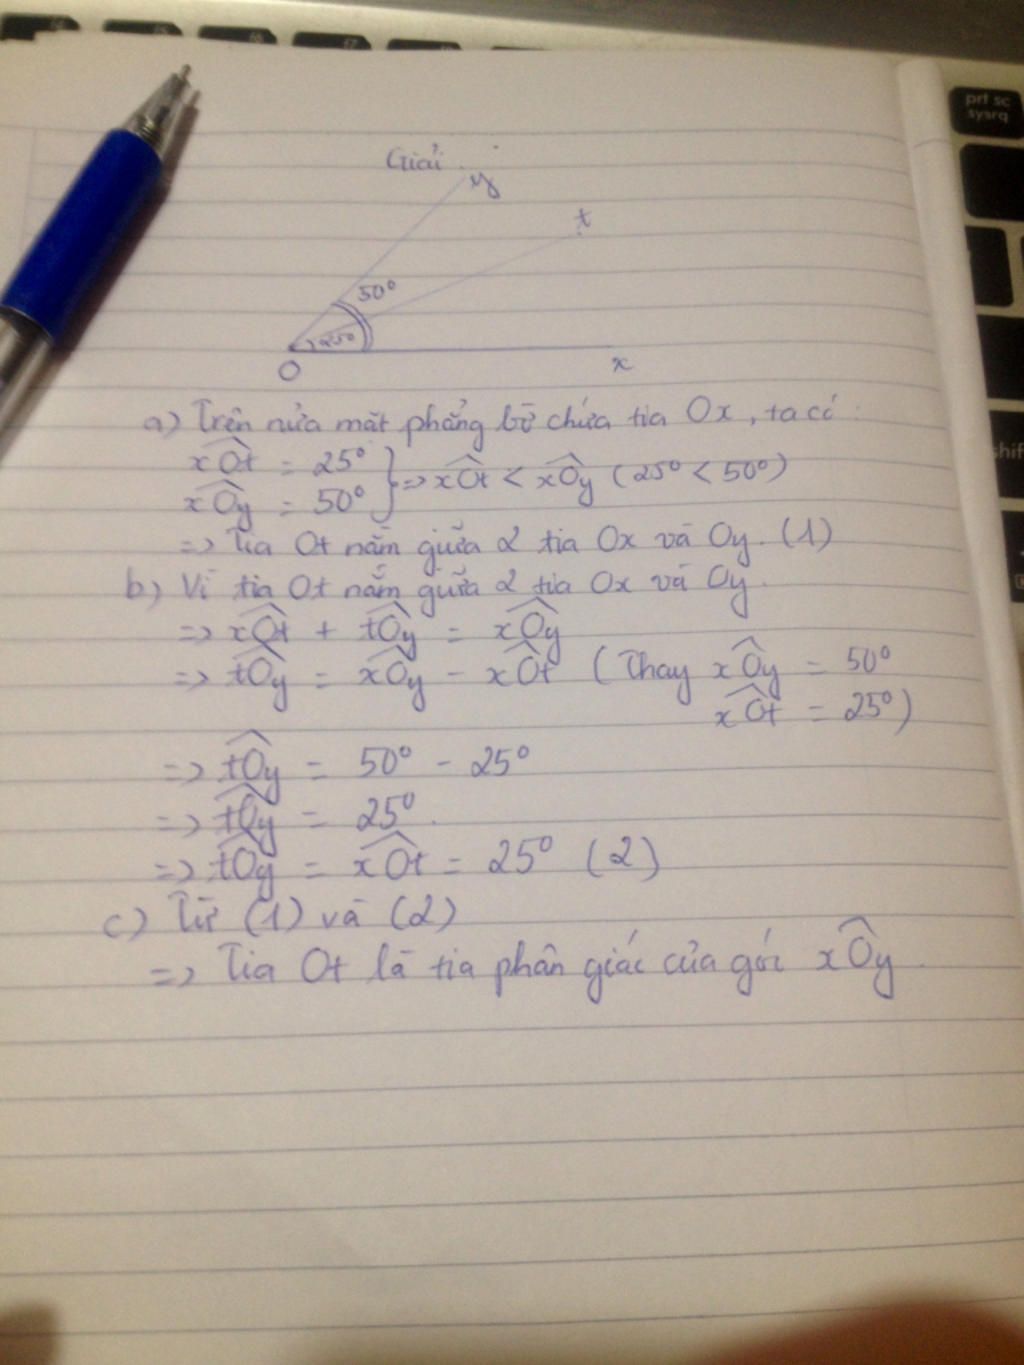 Giải
y
t
50°
25°
O
x
a) Trên nửa mặt phẳng bờ chứa tia Ox, ta có:
xOt = 25°
xOy = 50° } => xOt < xOy (25° < 50°)
=> Tia Ot nằm giữa 2 tia Ox và Oy. (1)
b) Vì tia Ot nằm giữa 2 tia Ox và Oy.
=> xOt + tOy = xOy
=> tOy = xOy - xOt (Thay xOy = 50°
xOt = 25°)
=> tOy = 50° - 25°
=> tOy = 25°.
=> tOy = xOt = 25° (2)
c) Từ (1) và (2)
=> Tia Ot là tia phân giác của góc xOy.
prt sc
sysrq
shif